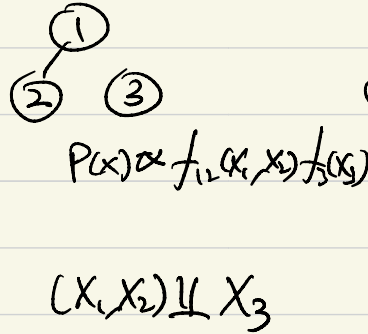 1
2 3
P(x) ∝ f₁₂(x₁,x₂) f₃(x₃)
(X₁,X₂) ⫫ X₃